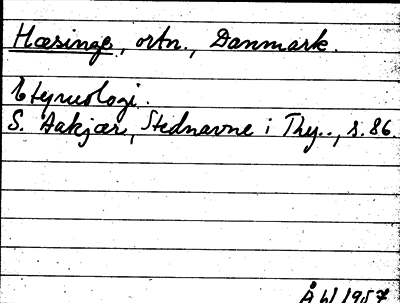 Hæsinge, ortn., Danmark.
Etymologi.
S. Aakjær, Stednavne i Thy.., s. 86.
Åbl 1957